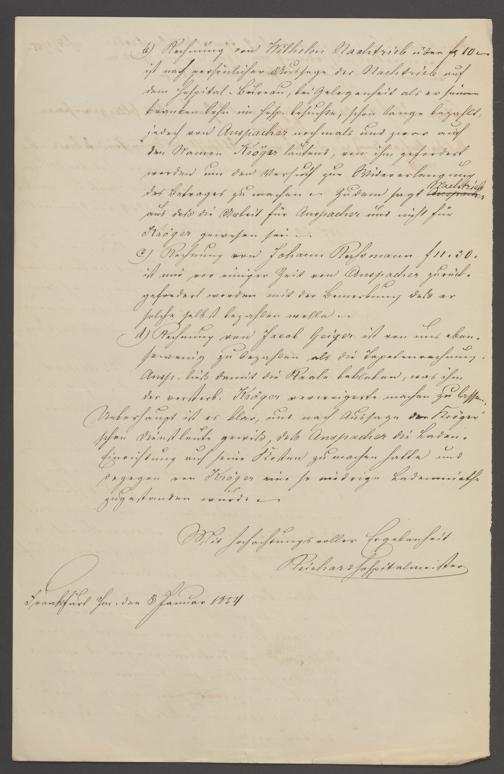 b) Rechnung von Wilhelm Nachtrieb über f 10 –
ist nach persönlicher Aussage des Nachtrieb auf
dem Hospital-Büreau, bei Gelegenheit als er seinen
kranken Sohn im Hosp. besuchte, schon lange bezahlt,
jedoch von Anspacher nochmals und zwar auf
den Namen Kröger lautend, von ihm gefordert
worden um den Versuch zur Wiedererlangung
des Betrages zu machen. – Zudem sagt Nachtrieb
aus daß die Arbeit für Anspacher und nicht für
Kröger gewesen sei. –
c) Rechnung von Johann Rohrmann f 11.30.
ist uns vor einiger Zeit von Anspacher zurück-
gefordert worden mit der Bemerkung daß er
solche selbst bezahlen wolle. –
d) Rechnung von Jacob Geiger ist von uns eben-
sowenig zu bezahlen als die Tapetenrechnung.
Ansp. ließ damit die Reale bekleben, was ihm
der verstorb. Kröger verweigerte machen zu lassen.
Ueberhaupt ist es klar, und nach Aussage der Kröger
schen Dienstleute gewiß, daß Anspacher die Laden-
Einrichtung auf seine Kosten zu machen hatte und
dagegen von Kröger eine so niedrige Ladenmiethe
zugestanden wurde. –
Mit hochachtungsvoller Ergebenheit
Reichard Hospitalmeister
Frankfurt a/m. den 8 Januar 1854